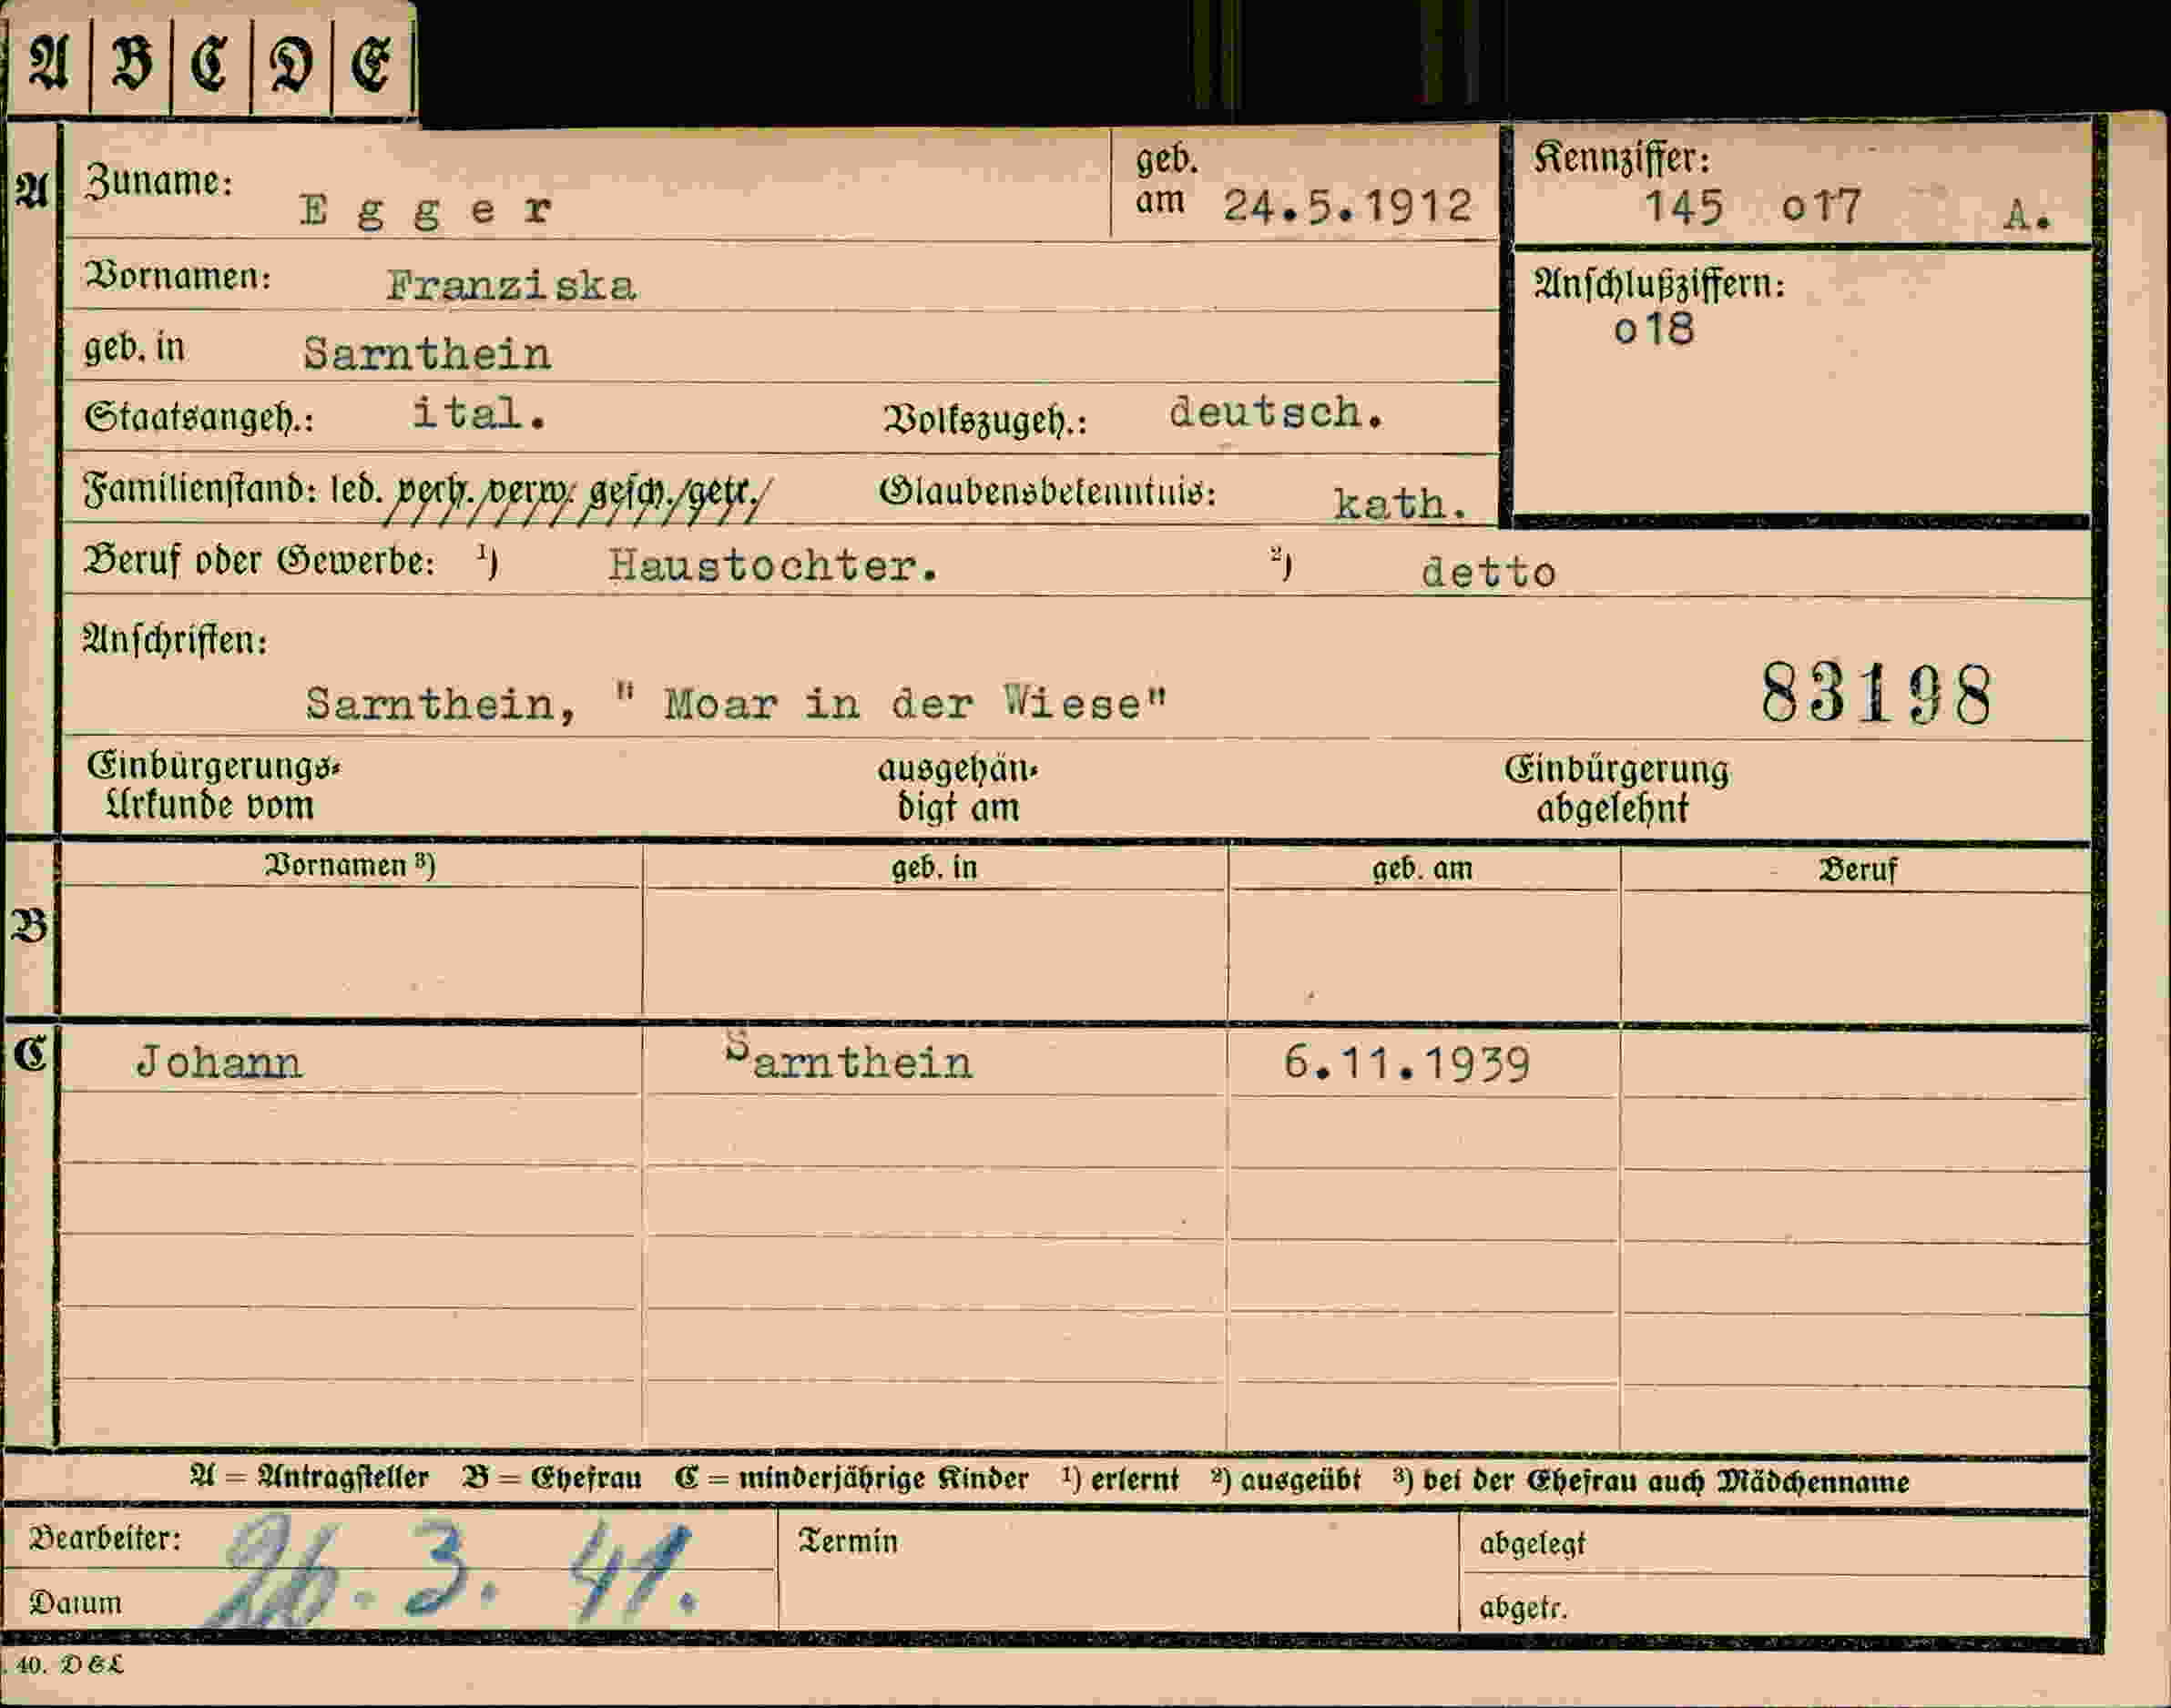 A B C D E
A Zuname: Egger geb. am 24.5.1912 Kennziffer: 145 o17 A.
Vornamen: Franziska Anschlußziffern: o18
geb. in Sarnthein
Staatsangeh.: ital. Volkszugeh.: deutsch.
Familienstand: led. verh. verw. gesch. getr. Glaubensbekenntnis: kath.
Beruf oder Gewerbe: ¹) Haustochter. ²) detto
Anschriften:
Sarnthein, " Moar in der Wiese" 83198
Einbürgerungs-Urkunde vom ausgehändigt am Einbürgerung abgelehnt
Vornamen ³) geb. in geb. am Beruf
B
C Johann Sarnthein 6.11.1939
A = Antragsteller B = Ehefrau C = minderjährige Kinder ¹) erlernt ²) ausgeübt ³) bei der Ehefrau auch Mädchenname
Bearbeiter: 26. 3. 41. Termin abgelegt
Datum abgetr.
. 40. D & L